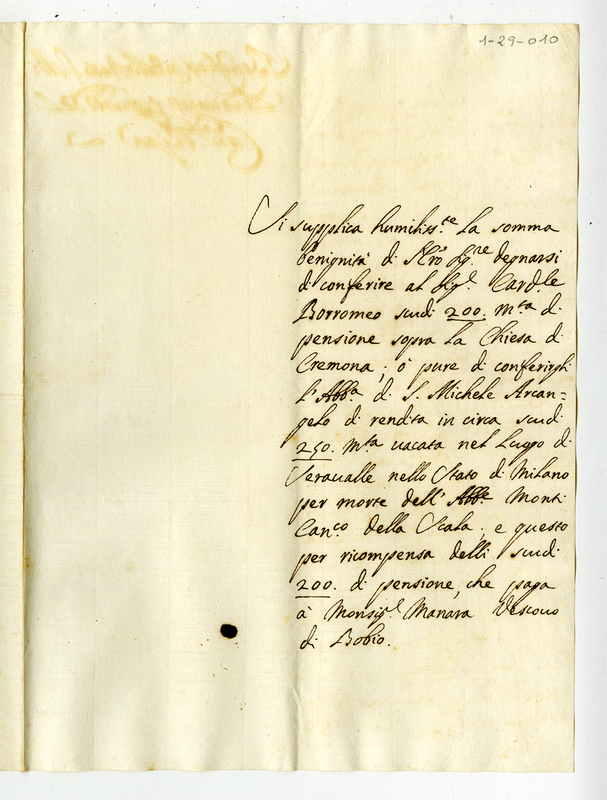 1-29-010
Si supplica humiliss.te la somma
benignità di Nr̃o Sig.re degnarsi
di conferire al Sig.r Card.le
Borromeo scudi 200. m.ta di
pensione sopra la Chiesa di
Cremona; ò pure di conferirgli
l'Abb.a di S. Michele Arcan=
gelo di rendita in circa scudi
250. m.ta uacata nel luogo di
Serauàlle nello Stato di Milano
per morte dell'Abb.e Monti
Can.co della Scala; e questo
per ricompensa delli scudi
200. di pensione, che paga
à Monsig.r Manara Vescouo
di Bobio.